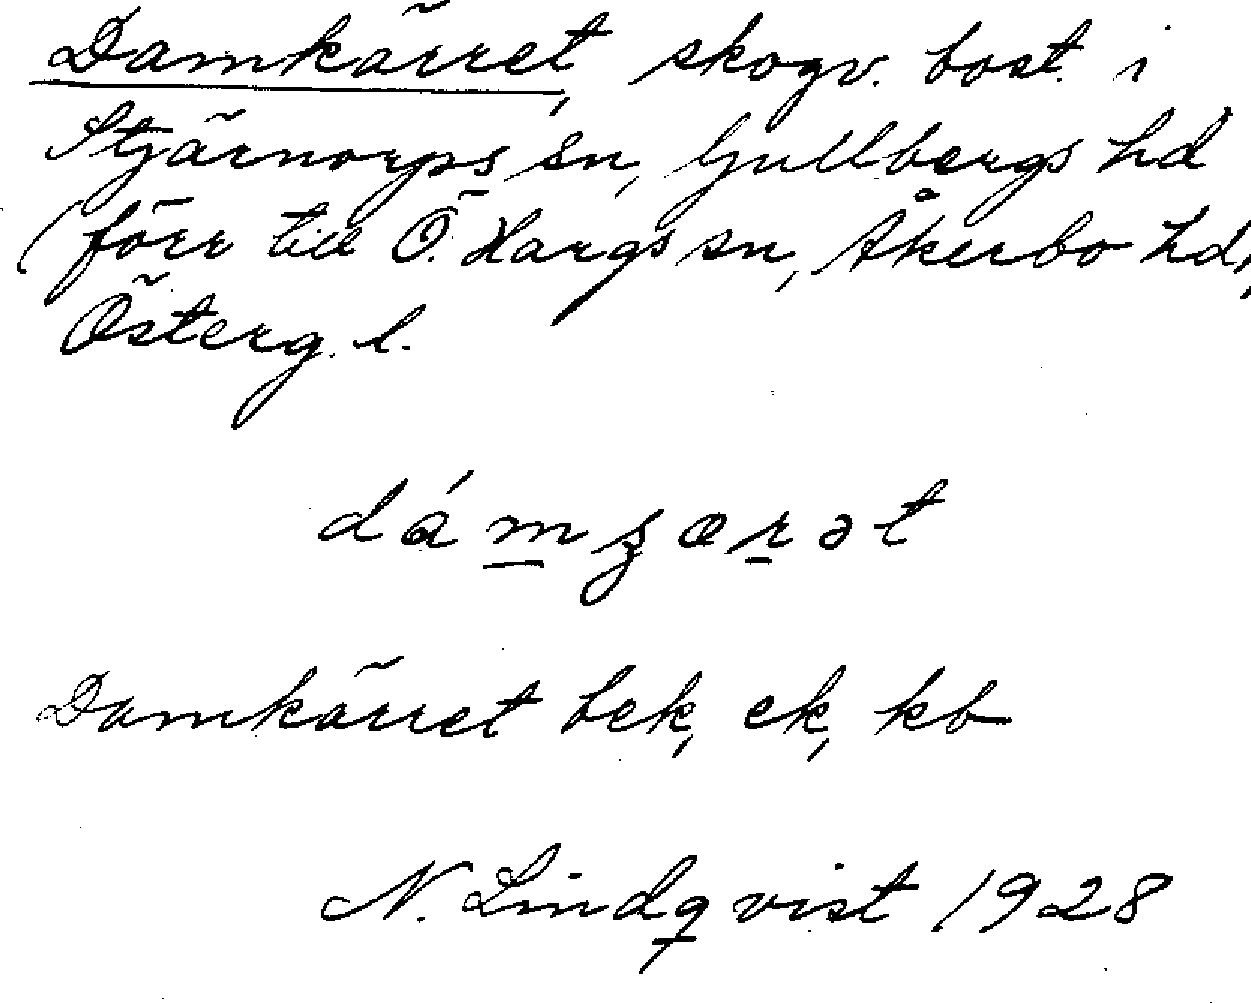 Damkärret, skogv. bost. i
Stjärnorps sn, Gullbergs hd
(förr till Ö. Hargs sn, Åkerbo hd,
Österg. l.
Damkärret bek, ek, kb
N. Lindqvist 1928